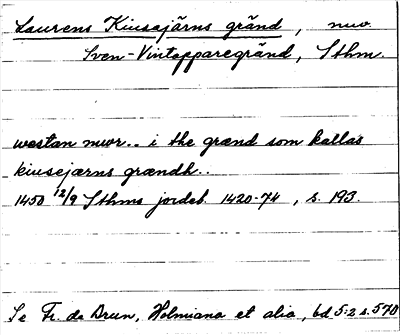 Laurens Kiusejärns gränd, nuv.
Sven-Vintapparegränd, Sthm.
westan mwr.. i the grænd som kallas
kiusejærns grændh..
1450 12/9 Sthms jordeb. 1420-74, s. 193.
Se Fr. de Brun, Holmiana et alia, bd 5:2 s. 570